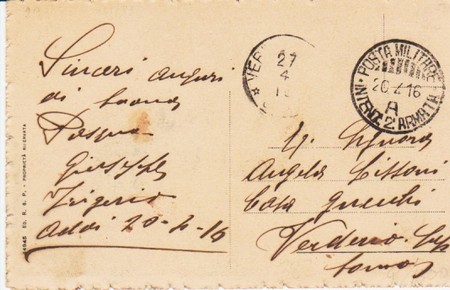 Sinceri auguri
di buona
Pasqua
Giuseppe
Frigerio
Addi 20-4-16
VER
27
4
1
POSTA MILITARE
20.4.16
A
INTENZ. 2ª ARMATA
Signora
Angela Tissoni
Casa Gnecchi
Verderio Sup
ED. R. & F. - PROPRIETÀ RISERVATA